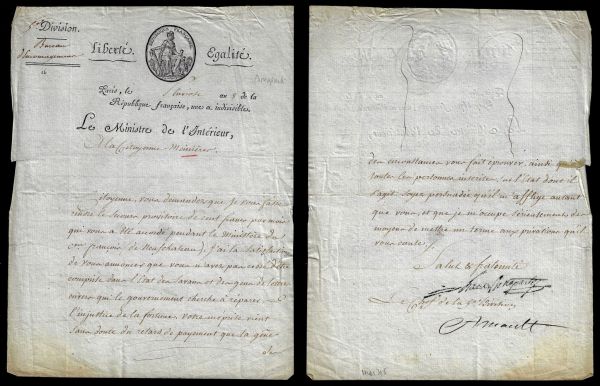 5e Division.
Bureau
d'encouragement
Liberté.
Egalité.
Paris, le
Pluviose an 8 de la
République française, une et indivisible.
Le Ministre de l'Intérieur,
A la Citoyenne
Citoyenne, vous demandez que je vous fasse
le secours provisoire de cent francs par mois
qui vous a été accordé pendant le Ministère du
Cen françois de Neufchateau; j'ai la satisfaction
de vous annoncer que vous n'avez pas cessé d'être
comprise dans l'état des Savans et des gens de lettres
envers qui le gouvernement cherche à réparer
l'injustice de la fortune. votre méprise vient
sans doute du retard de payement que la gêne
des
des circonstances vous fait éprouver, ainsi qu'à
toutes les personnes inscrites sur l'état dont il
s'agit. Soyez persuadée qu'il m'afflige autant
que vous, et que je m'occupe sérieusement des
moyens de mettre un terme aux privations qu'il
vous coute.
Salut & fraternité
Le Chef de la 5e Division
Arnault